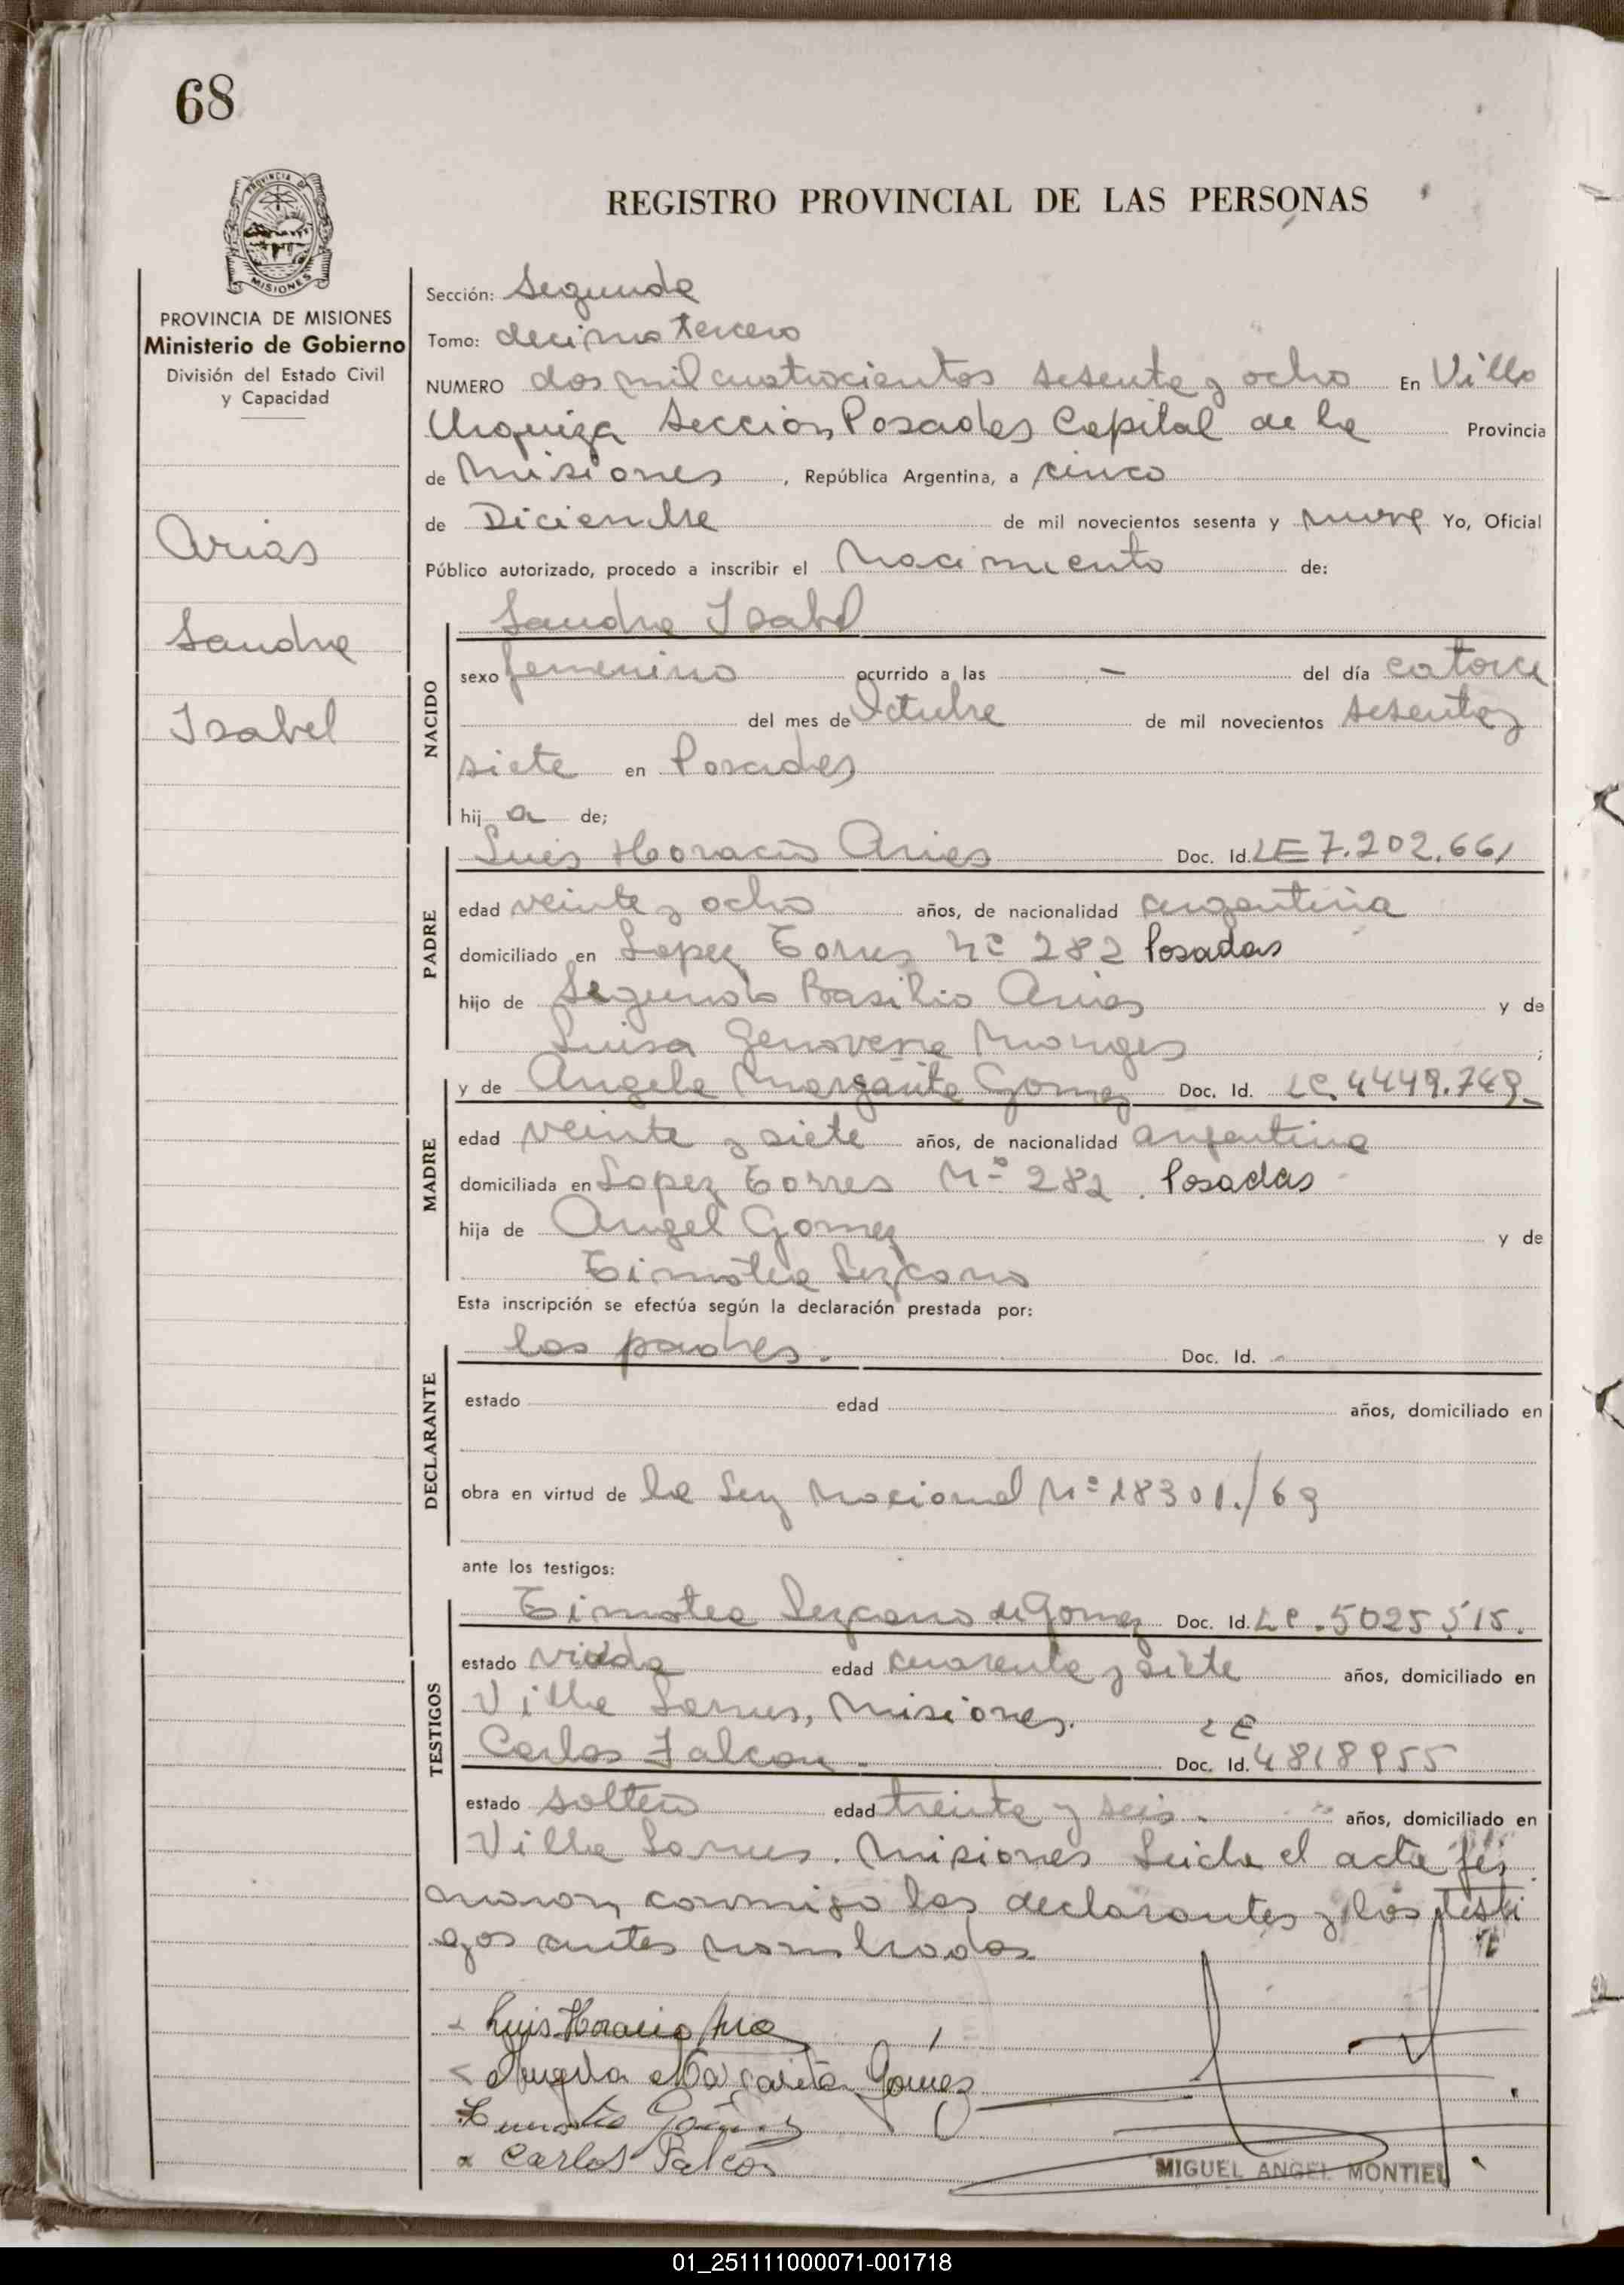 68
PROVINCIA DE
MISIONES
REGISTRO PROVINCIAL DE LAS PERSONAS
PROVINCIA DE MISIONES
Ministerio de Gobierno
División del Estado Civil
y Capacidad
Arias
Sandra
Isabel
Sección: Segunda
Tomo: decimo tercero
NUMERO dos mil cuatrocientos sesenta y ocho En Villa
Urquiza Sección Posadas Capital de la Provincia
de Misiones, República Argentina, a cinco
de Diciembre de mil novecientos sesenta y nueve Yo, Oficial
Público autorizado, procedo a inscribir el Nacimiento de:
Sandra Isabel
NACIDO
sexo femenino ocurrido a las – del día catorce
del mes de Octubre de mil novecientos sesenta y
siete en Posadas
hij a de;
Luis Horacio Arias Doc. Id. LE 7.202.661
PADRE
edad veinte y ocho años, de nacionalidad argentina
domiciliado en Lopez Torres Nº 282 Posadas
hijo de Segundo Basilio Arias y de
Luisa Genoveva Monges ;
y de Angela Margarita Gomez Doc. Id. LC. 4449.749_
MADRE
edad veinte y siete años, de nacionalidad argentina
domiciliada en Lopez Torres Nº 282. Posadas
hija de Angel Gomez y de
Timotea Lezcano
Esta inscripción se efectúa según la declaración prestada por:
los padres. Doc. Id. -
DECLARANTE
estado edad años, domiciliado en
obra en virtud de la Ley Nacional Nº 18301./69
ante los testigos:
Timotea Lezcano de Gomez Doc. Id. LC. 5025515.
TESTIGOS
estado viuda edad cuarenta y siete años, domiciliado en
Villa Lanus, Misiones.
LE
Carlos Falcon. Doc. Id. 4818955
estado soltero edad treinta y seis. años, domiciliado en
Villa Lanus. Misiones Leida el acta fir
maron conmigo los declarantes y los testi
gos antes nombrados
Luis Horacio Aria
Angela Margarita Gómez
Carlos Falcon
MIGUEL ANGEL MONTIEL
01_251111000071-001718